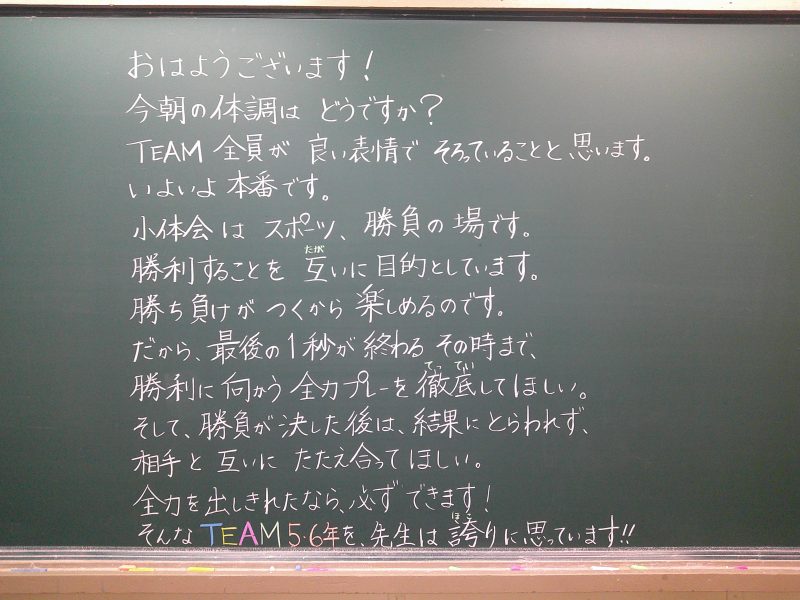 おはようございます！
今朝の体調は どうですか？
TEAM 全員が 良い表情で そろっていることと、思います。
いよいよ 本番です。
小体会は スポーツ、勝負の 場です。
たが
勝利することを 互いに 目的としています。
勝ち負けが つくから 楽しめるのです。
だから、最後の1秒が 終わる その時まで、
てっ てい
勝利に 向かう 全力プレーを 徹底してほしい。
そして、勝負が 決した後は、結果に とらわれず、
相手と 互いに たたえ合って ほしい。
全力を出しきれたなら、必ず できます！
ほこ
そんな TEAM 5・6年を、先生は 誇りに思っています!!